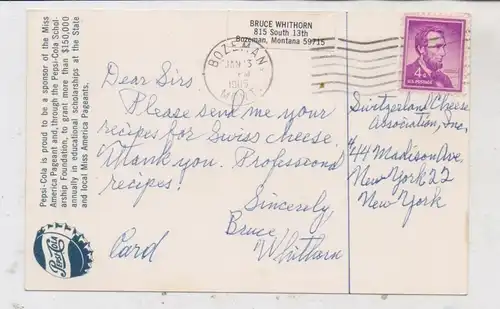 Pepsi-Cola is proud to be a sponsor of the Miss
America Pageant and, through the Pepsi-Cola Schol-
arship Foundation, to grant more than $150,000
annually in educational scholarships at the State
and local Miss America Pageants.
Pepsi-Cola
BRUCE WHITHORN
815 South 13th
Bozeman, Montana 59715
BOZEMAN
JAN 13
MONT
4¢
U.S. POSTAGE
Dear Sirs
Please send me your
recipes for Swiss cheese.
Thank you. Professional
recipes!
Sincerely,
Bruce
Whithorn
Card
Switzerland Cheese
Association, Inc.
444 Madison Ave.
New York 22
New York